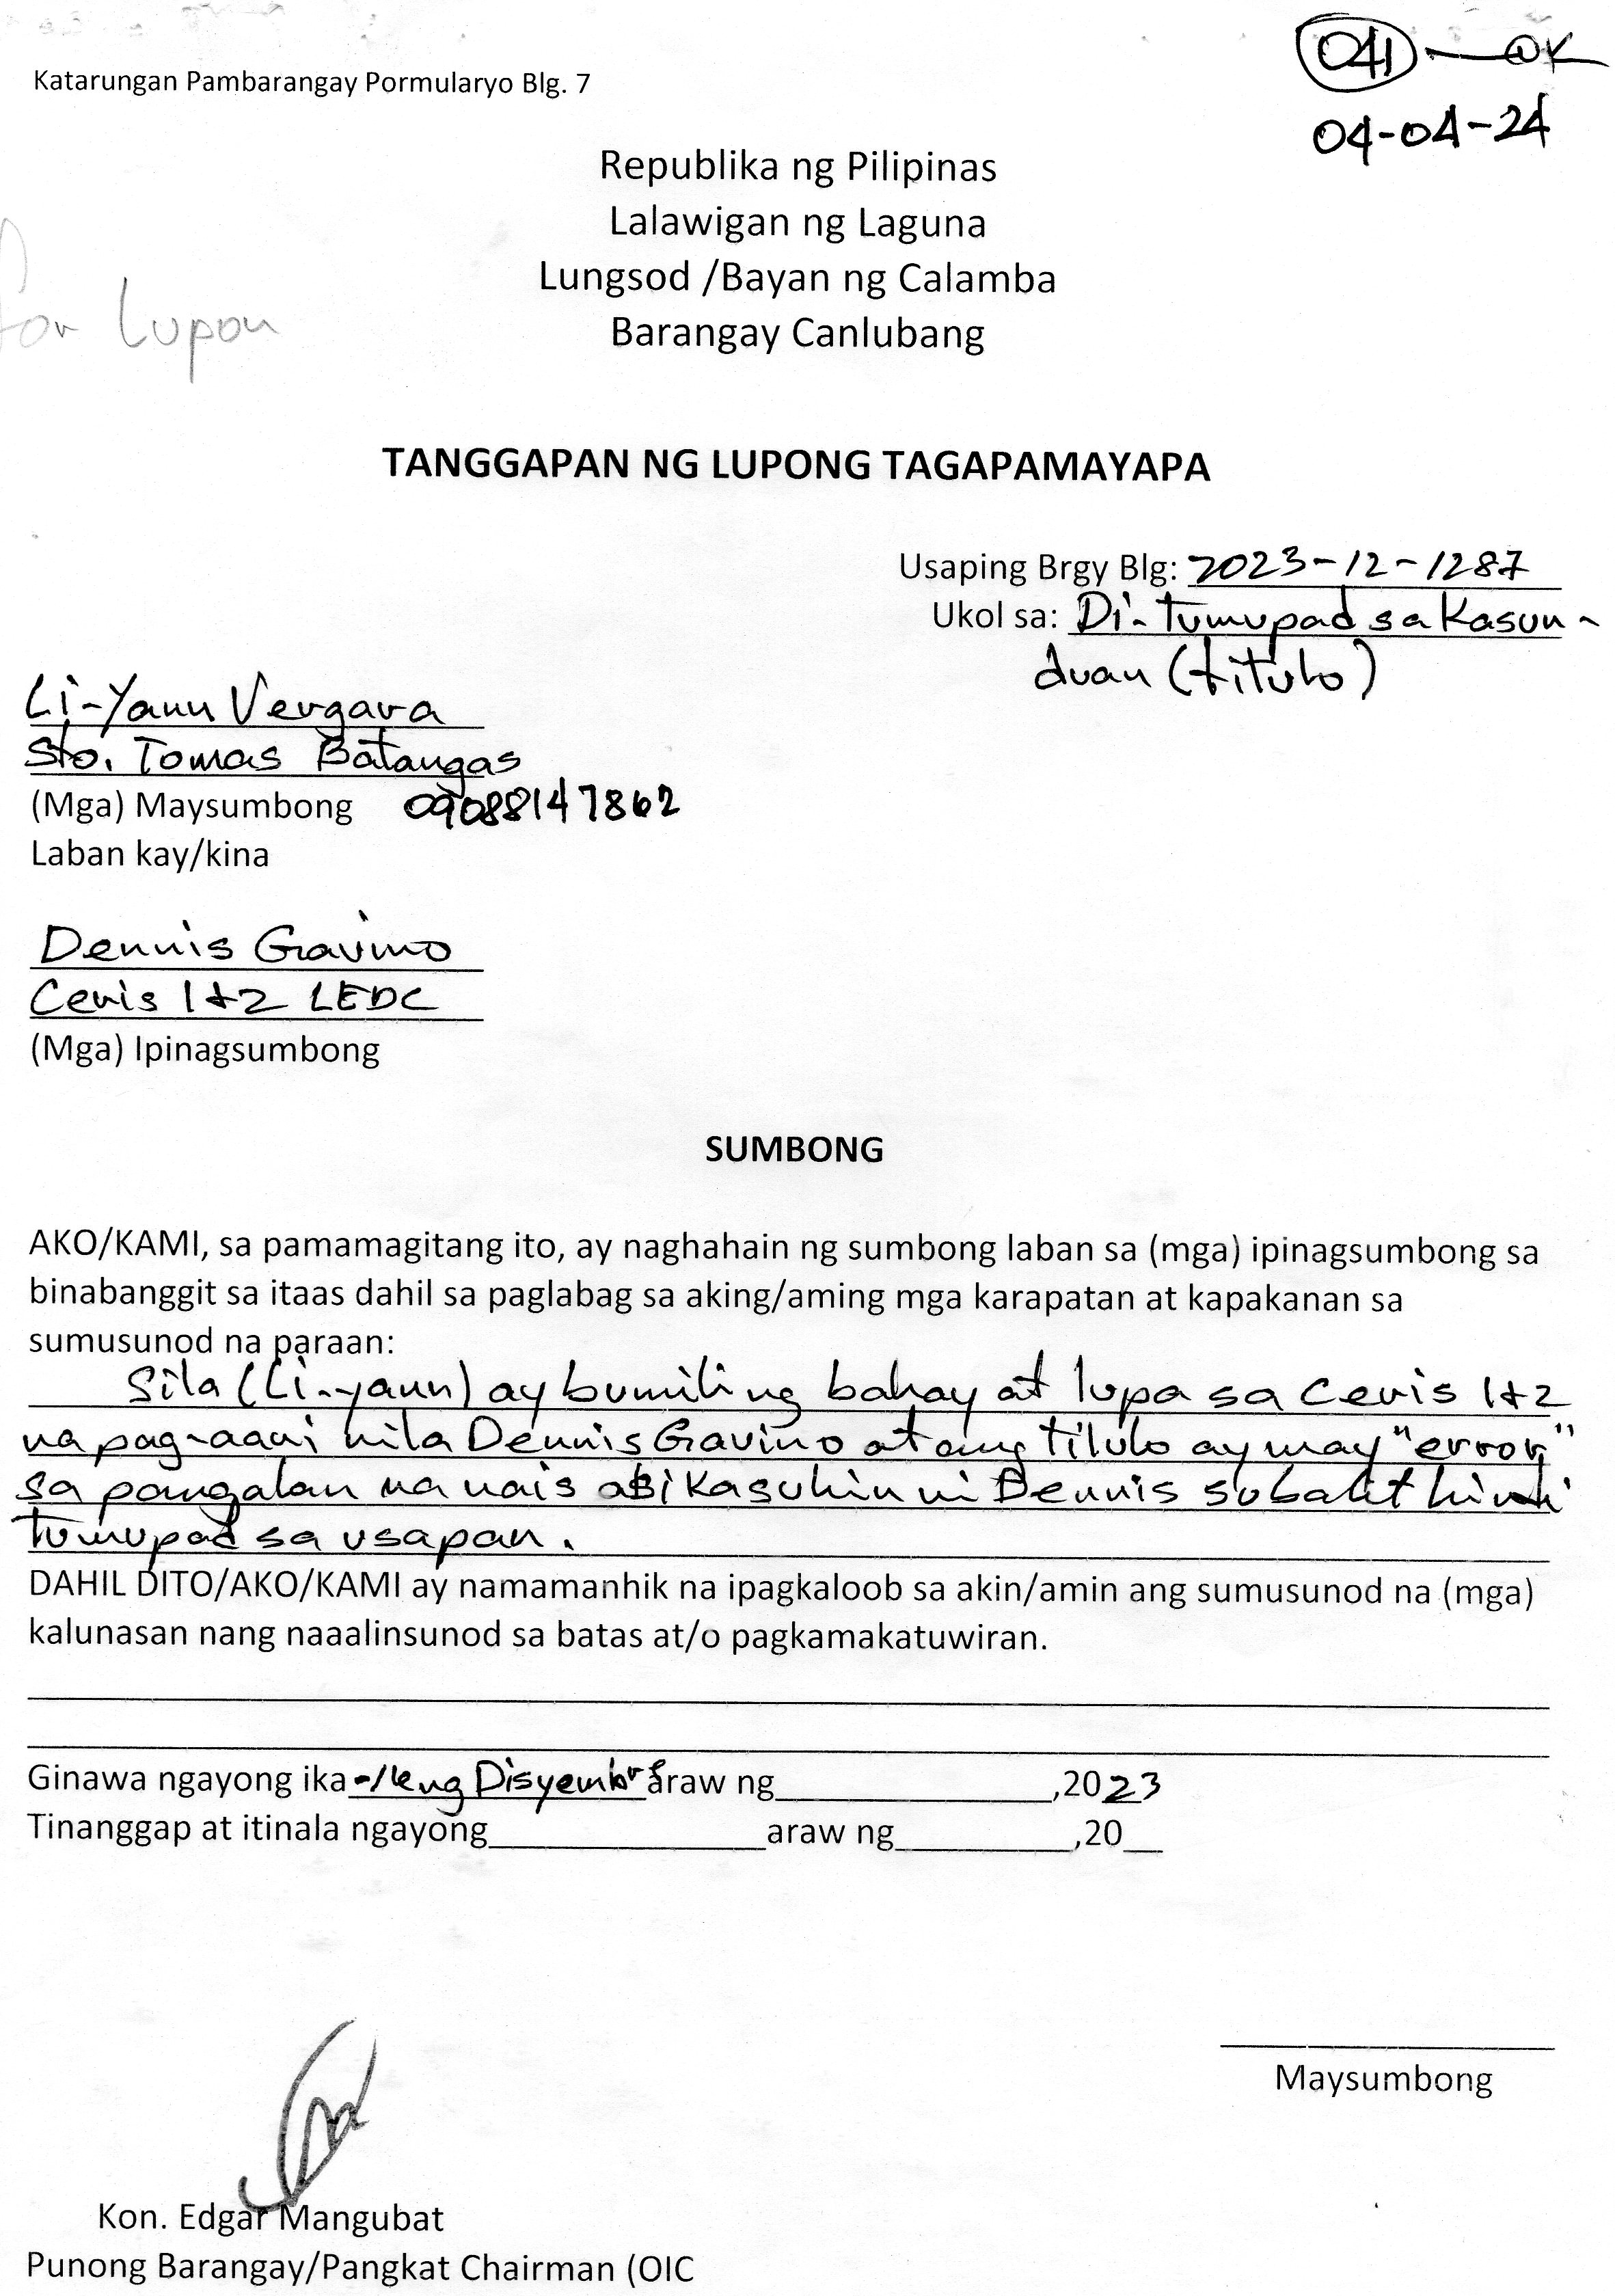 041 — OK
04-04-24
Katarungan Pambarangay Pormularyo Blg. 7
Republika ng Pilipinas
Lalawigan ng Laguna
Lungsod /Bayan ng Calamba
Barangay Canlubang
for Lupon
TANGGAPAN NG LUPONG TAGAPAMAYAPA
Usaping Brgy Blg: 2023-12-1287
Ukol sa: Di-tumupad sa Kasun-
duan (titulo)
Li-Yann Vergara
Sto. Tomas Batangas
(Mga) Maysumbong 09088147862
Laban kay/kina
Dennis Gravino
Ceris 1+2 LEDC
(Mga) Ipinagsumbong
SUMBONG
AKO/KAMI, sa pamamagitang ito, ay naghahain ng sumbong laban sa (mga) ipinagsumbong sa
binabanggit sa itaas dahil sa paglabag sa aking/aming mga karapatan at kapakanan sa
sumusunod na paraan:
Sila (Li-yann) ay bumili ng bahay at lupa sa Ceris 1+2
na pag-aari nila Dennis Gravino at ang titulo ay may "error"
sa pangalan na nais asikasuhin ni Dennis subalit hindi
tumupad sa usapan.
DAHIL DITO/AKO/KAMI ay namamanhik na ipagkaloob sa akin/amin ang sumusunod na (mga)
kalunasan nang naaalinsunod sa batas at/o pagkamakatuwiran.
Ginawa ngayong ika ng Disyembre araw ng ,2023
Tinanggap at itinala ngayong araw ng ,20
Maysumbong
Kon. Edgar Mangubat
Punong Barangay/Pangkat Chairman (OIC